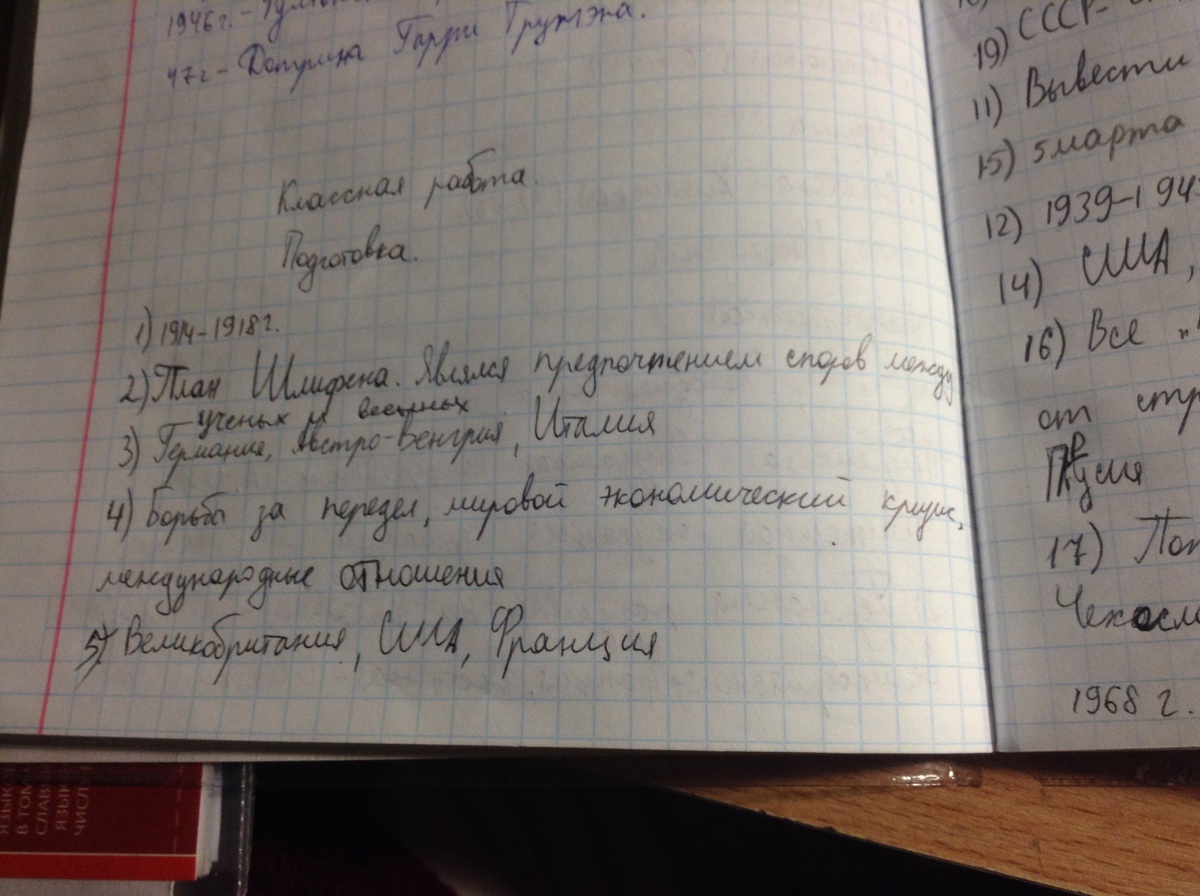 1946г. -
47г - Доктрина Гарри Трумэна.
Классная работа.
Подготовка.
1) 1914-1918г.
2) План Шлифена. Являлся предпочтением споров между
ученых и военных
3) Германия, Австро-Венгрия, Италия
4) Борьба за передел, мировой экономический кризис,
международные отношения
5) Великобритания, США, Франция
19) СССР-
11) Вывести
15) 5 марта
12) 1939-194
14) США,
16) Все "
от стр
17) Пот
Чехосл
1968 г.
ЯЗЫК
В ТОМ
СЛАВ
ЯЗЫК
ЧИСЛ